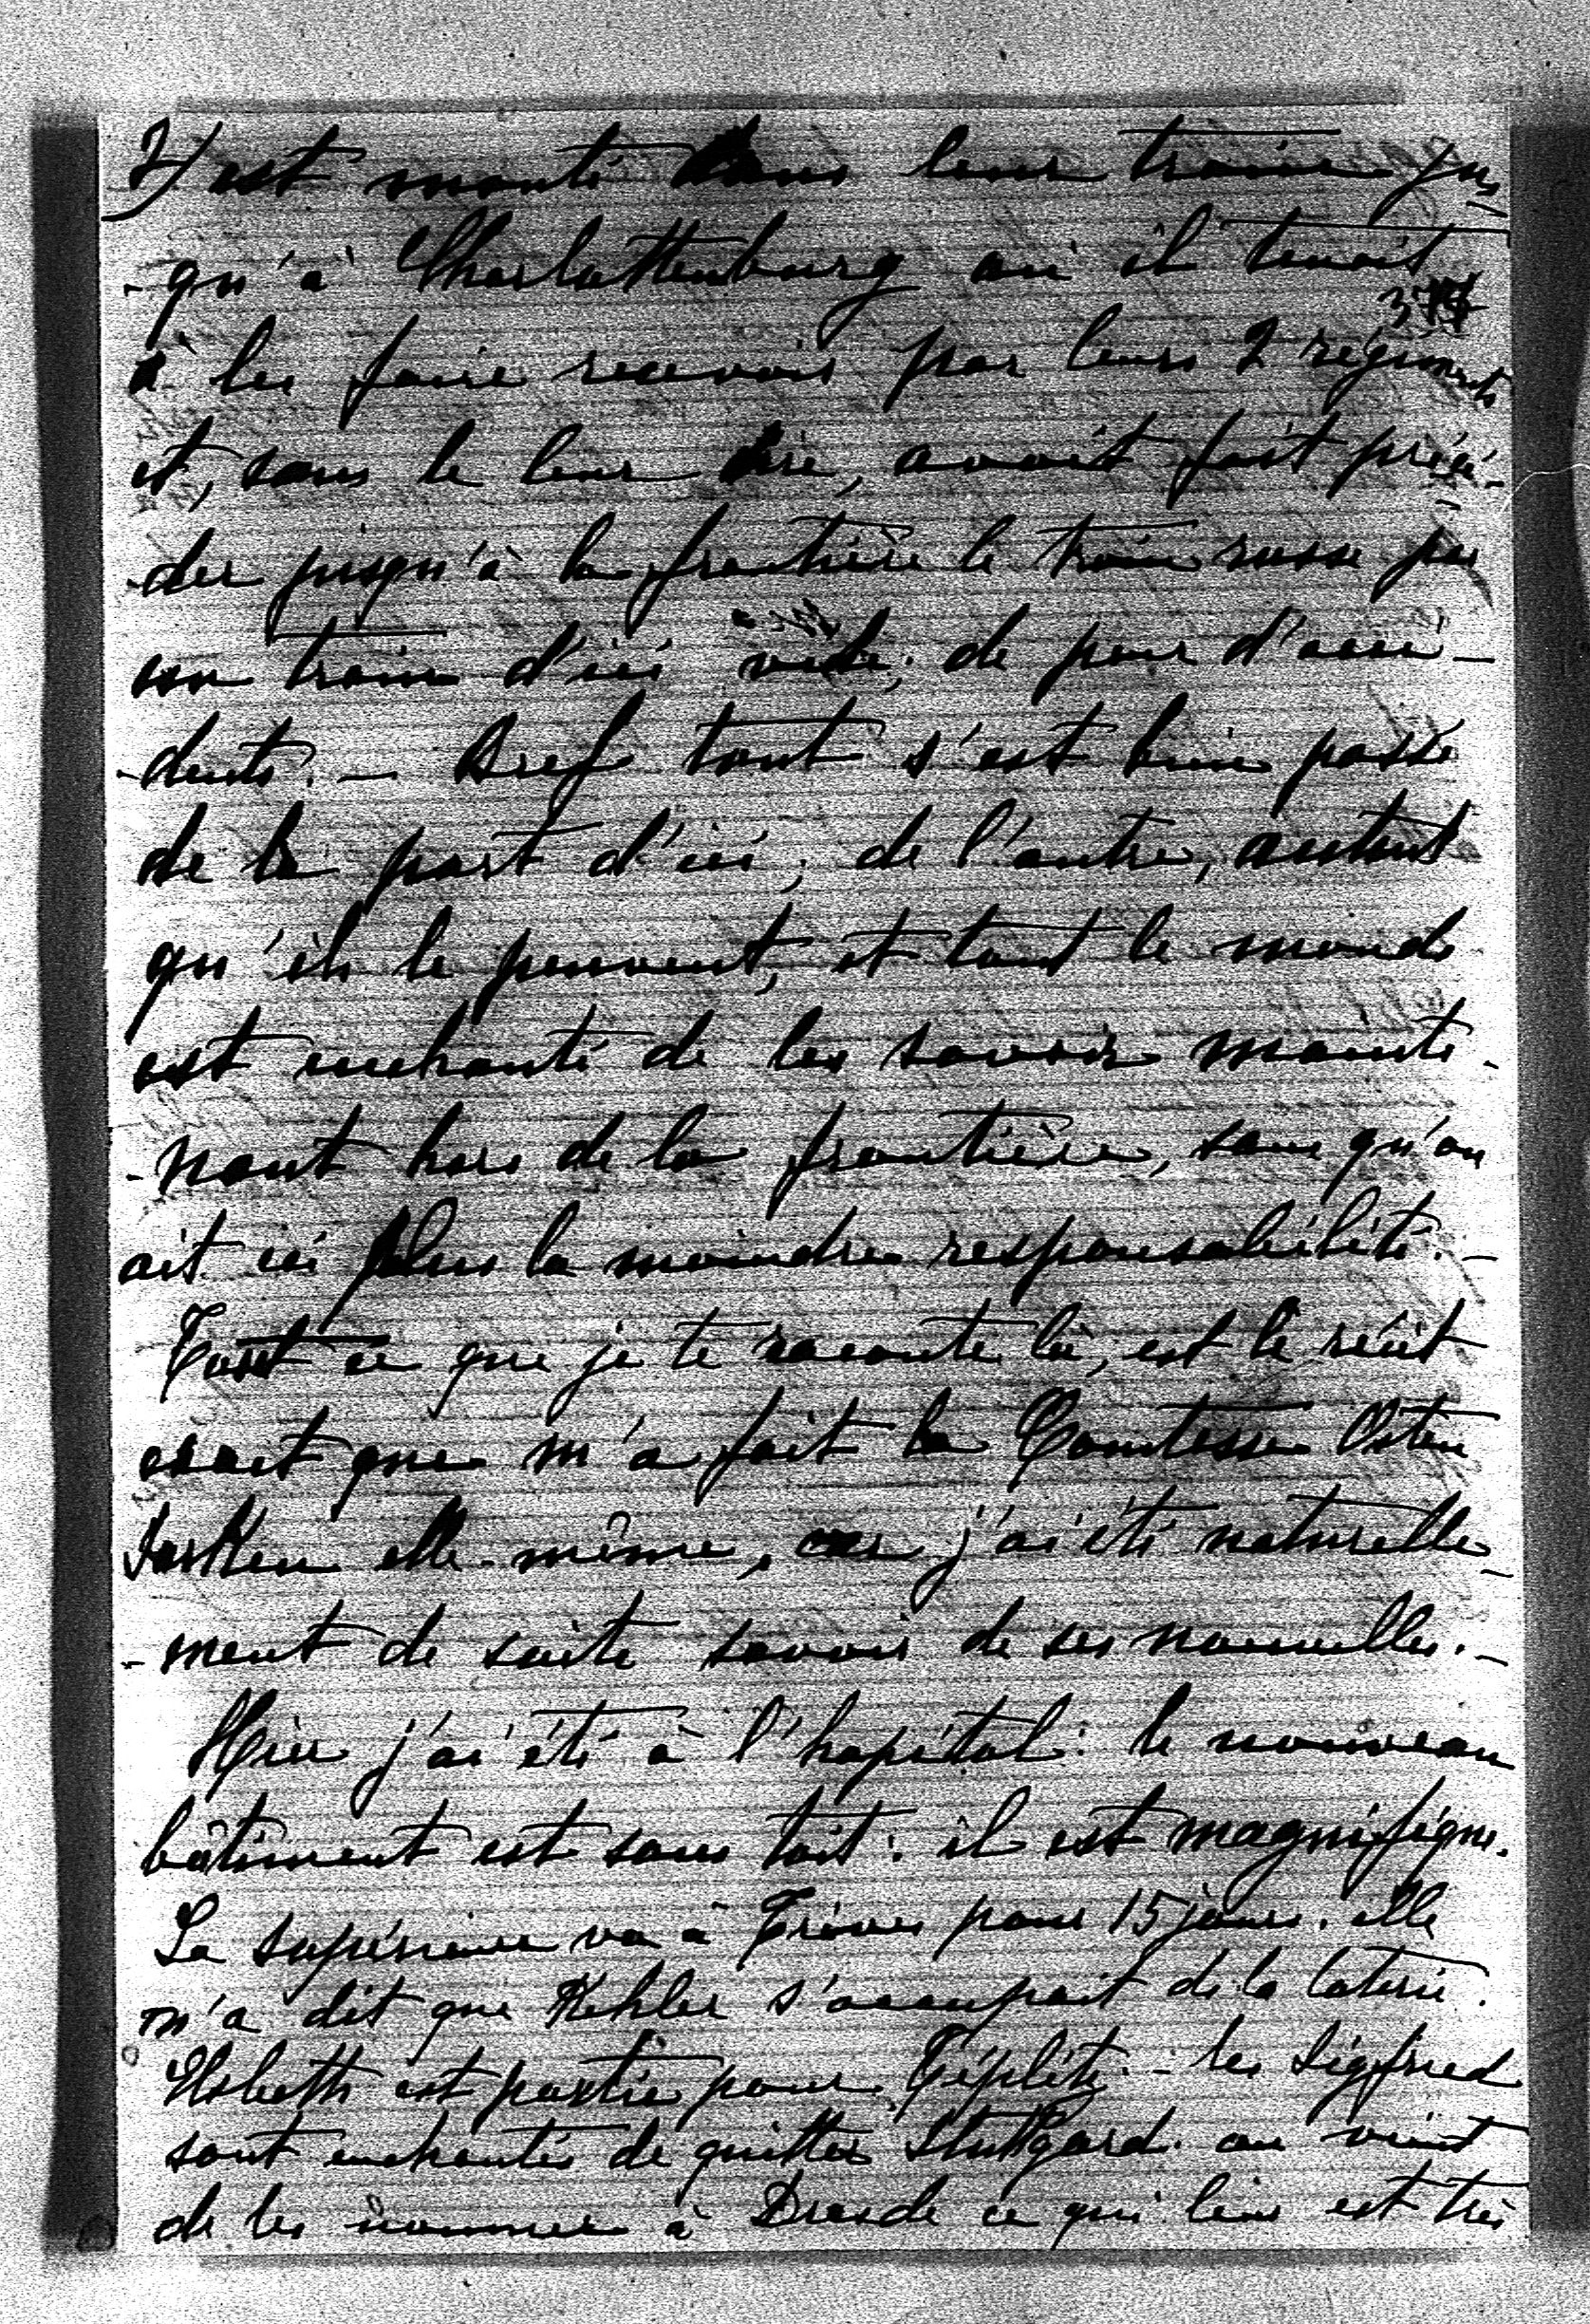 7) est monté dans leur train jus-
-qu'à Charlottenburg où il tenait
377
à les faire recevoir par leurs 2 régiments
et, sans le leur dire, avait fait précé-
-der jusqu'à la frontière le train russe par
son train d'ici vide, de peur d'acci-
-dents. - Bref tout s'est bien passé
de la part d'ici; de l'autre, autant
qu'ils le peuvent, et tout le monde
est enchanté de les savoir mainte-
-nant hors de la frontière, sans qu'on
ait ici plus la moindre responsabilité. -
Tout ce que je te raconte là, est le récit
exact que m'a fait la Comtesse Osten
Sacken elle-même, car j'ai été naturelle-
-ment de suite savoir de ses nouvelles. -
Hier j'ai été à l'hopital: le nouveau
bâtiment est sous toit: il est magnifique.
La supérieure va à Trèves pour 15 jours. elle
m'a dit que Kehler s'occupait de la loterie.
Elsbeth est partie pour Téplitz. - les Sigfried
sont enchantés de quitter Stuttgard. on vient
de les nommer à Dresde ce qui leur est très